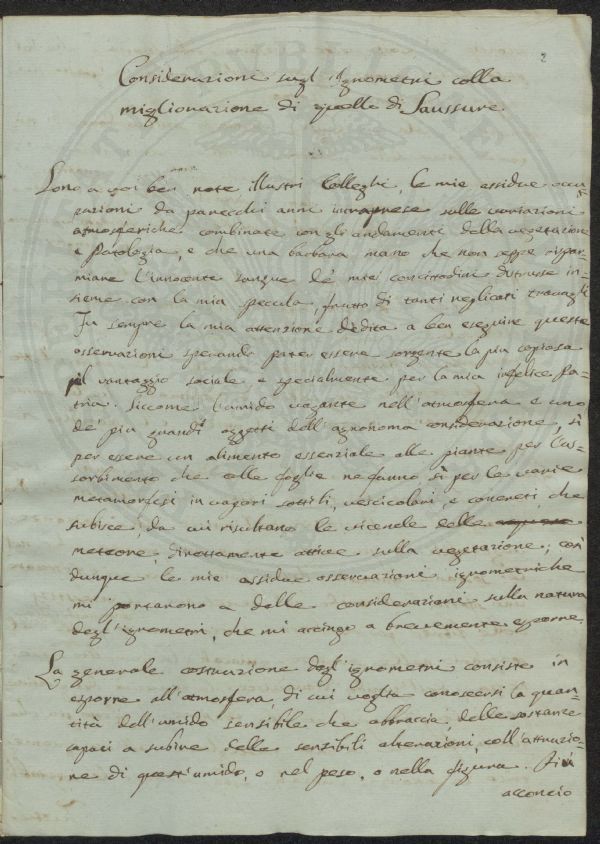 2
Considerazioni sugl'Ignometri colla
miglionazione di quello di Saussure.
Sono a voi ben note illustri Colleghi, le mie assidue occu-
pazioni da parecchi anni intraprese sulle variazioni
atmosferiche combinate con gli andamenti della vegetazione
e Patologia, e che una barbara mano che non seppe rispar-
miare l'innocente sangue de' miei concittadini distrusse in-
sieme con la mia specula, frutto di tanti replicati travagli
Fu sempre la mia attenzione dedita a ben eseguire queste
osservazioni sperando poter essere sorgente la più copiosa
pel vantaggio sociale e specialmente per la mia infelice Pa-
tria. Siccome l'umido vagante nell'atmosfera è uno
de' più grandi oggetti dell'agronoma considerazione, sì
per essere un alimento essenziale alle piante per l'as-
sorbimento che colle foglie ne fanno, sì per le varie
metamorfosi in vapori sottili, vescicolari, e concreti, che
subisce, da cui risultano le vicende delle
meteore, direttamente attive sulla vegetazione; così
dunque le mie assidue osservazioni ignometriche
mi portarono a delle considerazioni sulla natura
degl'ignometri, che mi accingo a brevemente esporre.
La generale costruzione degl'ignometri consiste in
esporre all'atmosfera, di cui voglia conoscersi la quan-
tità dell'umido sensibile che abbraccia, delle sostanze
capaci a subire delle sensibili alterazioni coll'attrazio-
ne di quest'umido, o nel peso, o nella figura. Più
acconcio